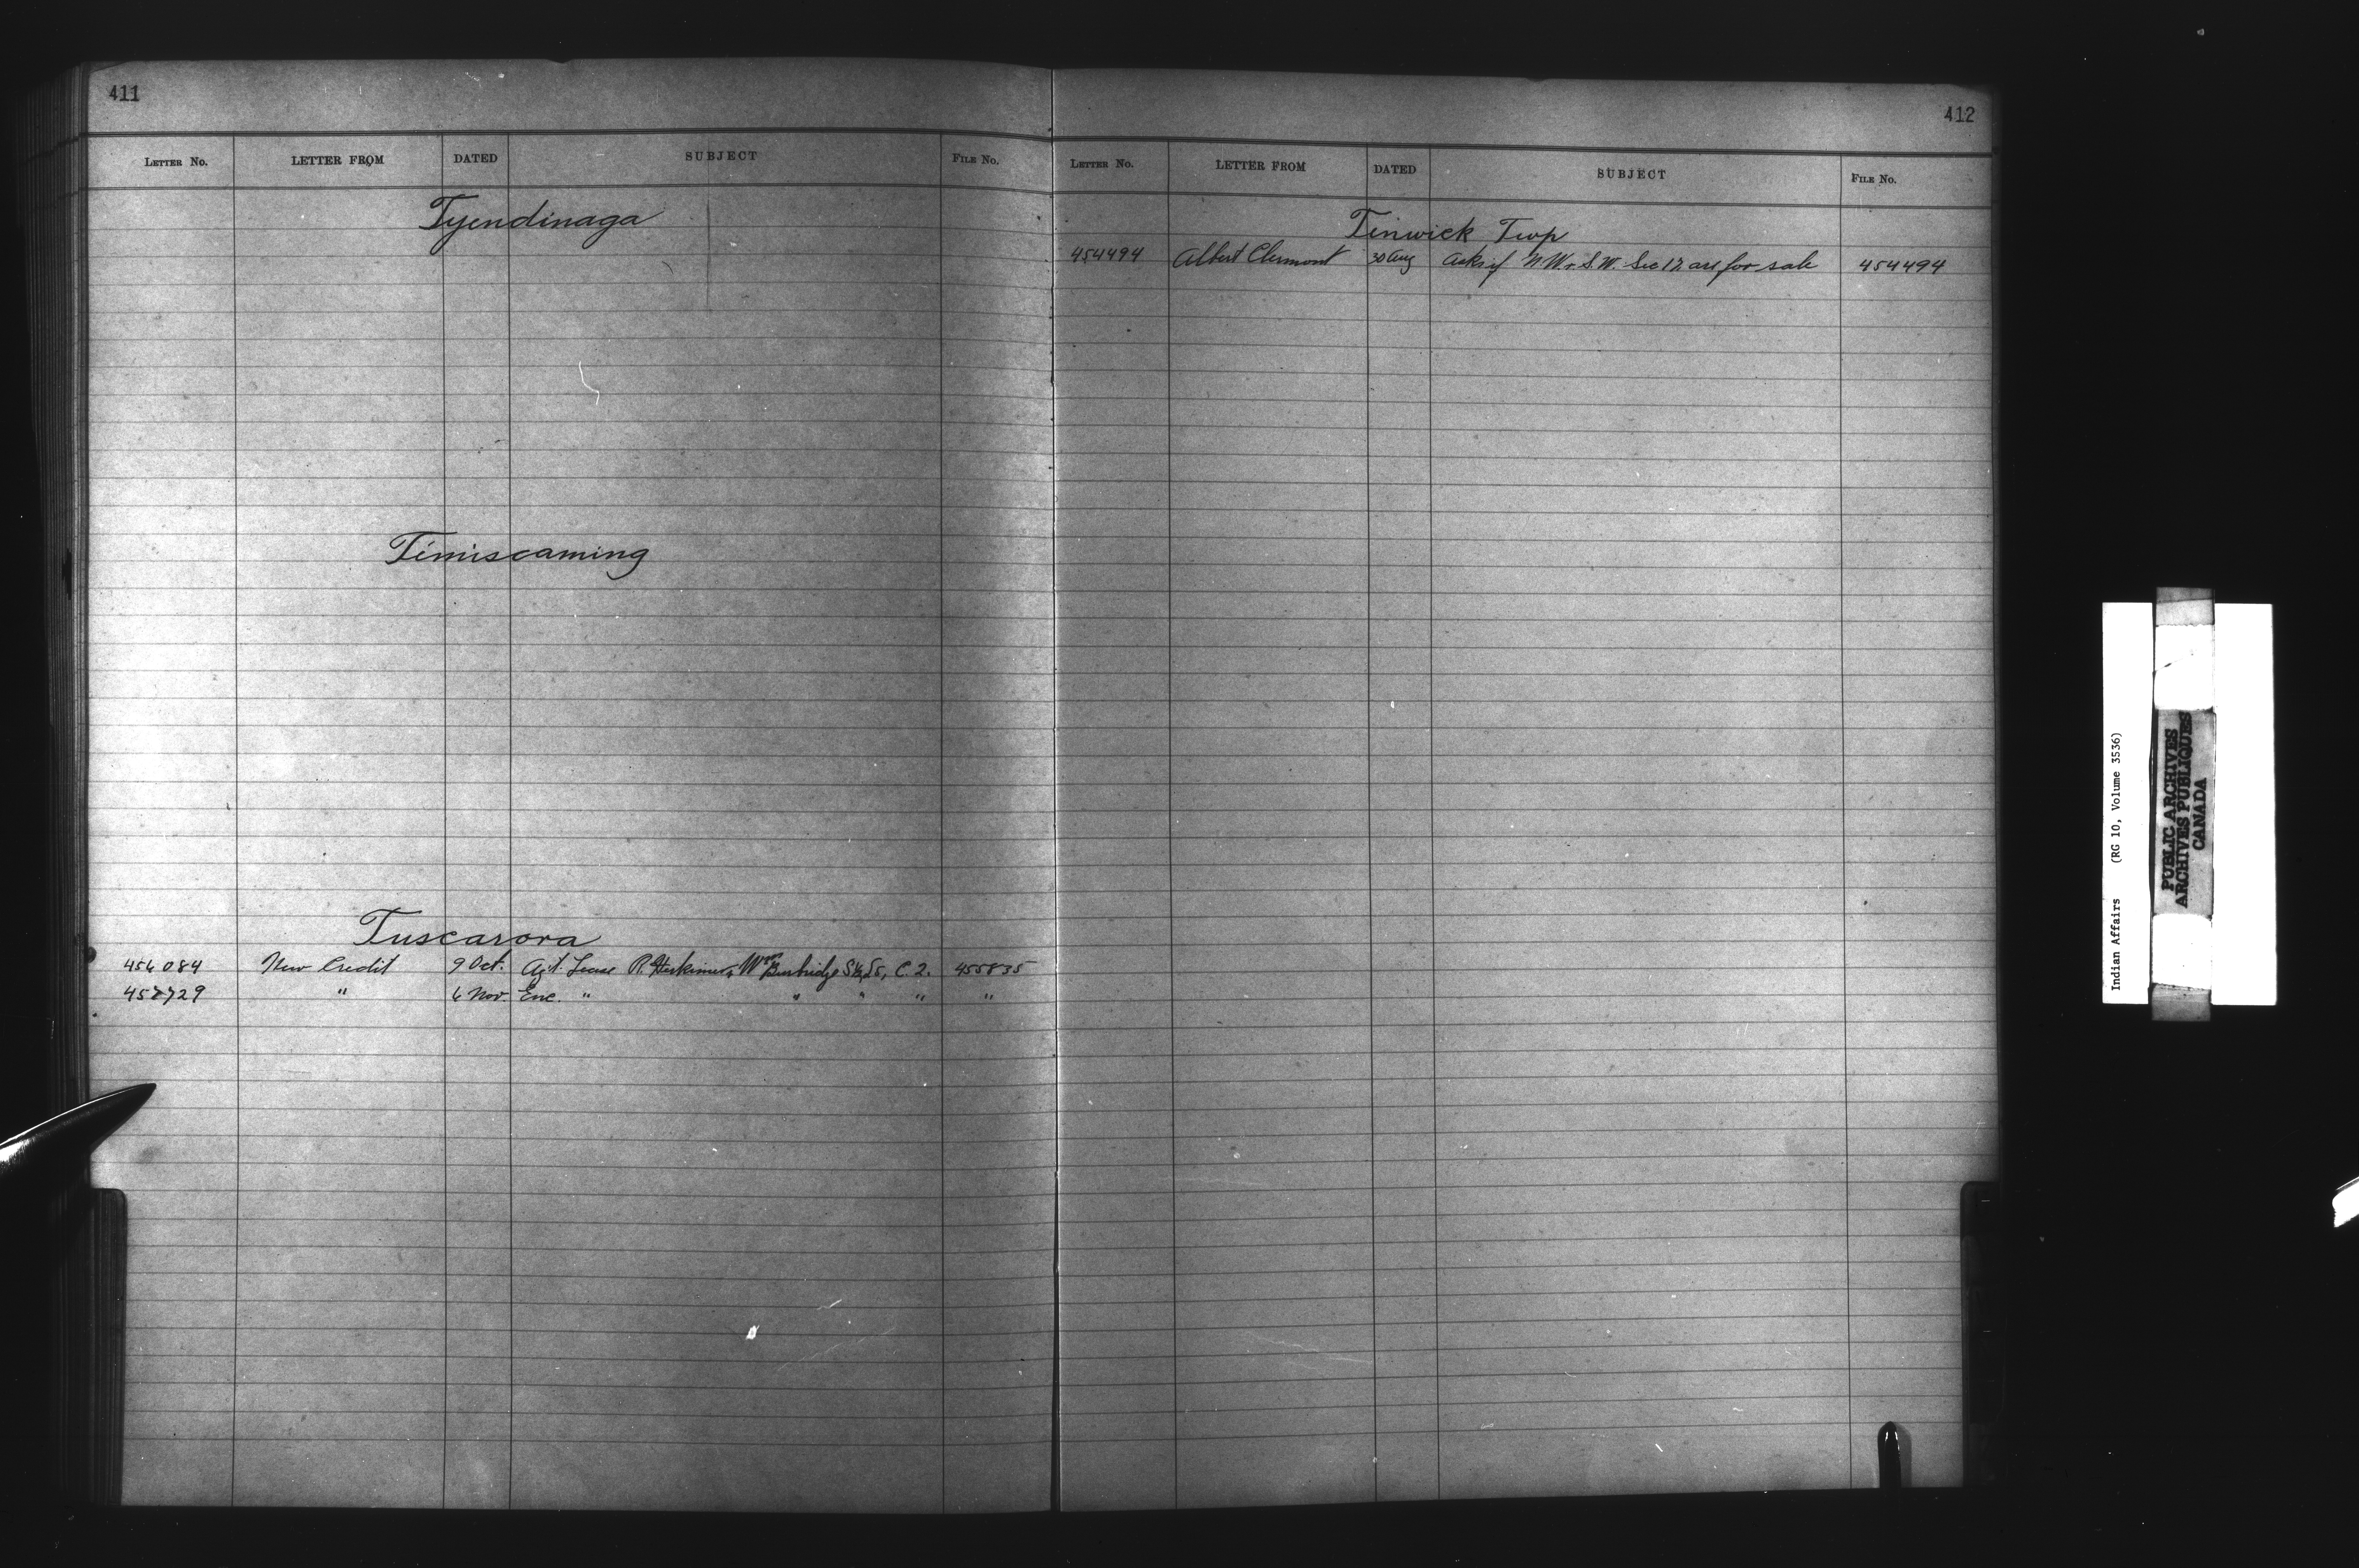 411
LETTER No. LETTER FROM DATED SUBJECT FILE No.
Tyendinaga
Timiscaming
Tuscarora
456084 New Credit 9 Oct. Agt. Lease P. Herkimer, Wm Burbridge S½, L5, C. 2. 455835
457729 " 6 Nov. Enc. " " " " "
412
LETTER No. LETTER FROM DATED SUBJECT FILE No.
Tinwick Twp
454494 Albert Clermont 30 Aug Asks if N.W. & S.W. Sec 12 are for sale 454494
Indian Affairs (RG 10, Volume 3536)
PUBLIC ARCHIVES
ARCHIVES PUBLIQUES
CANADA